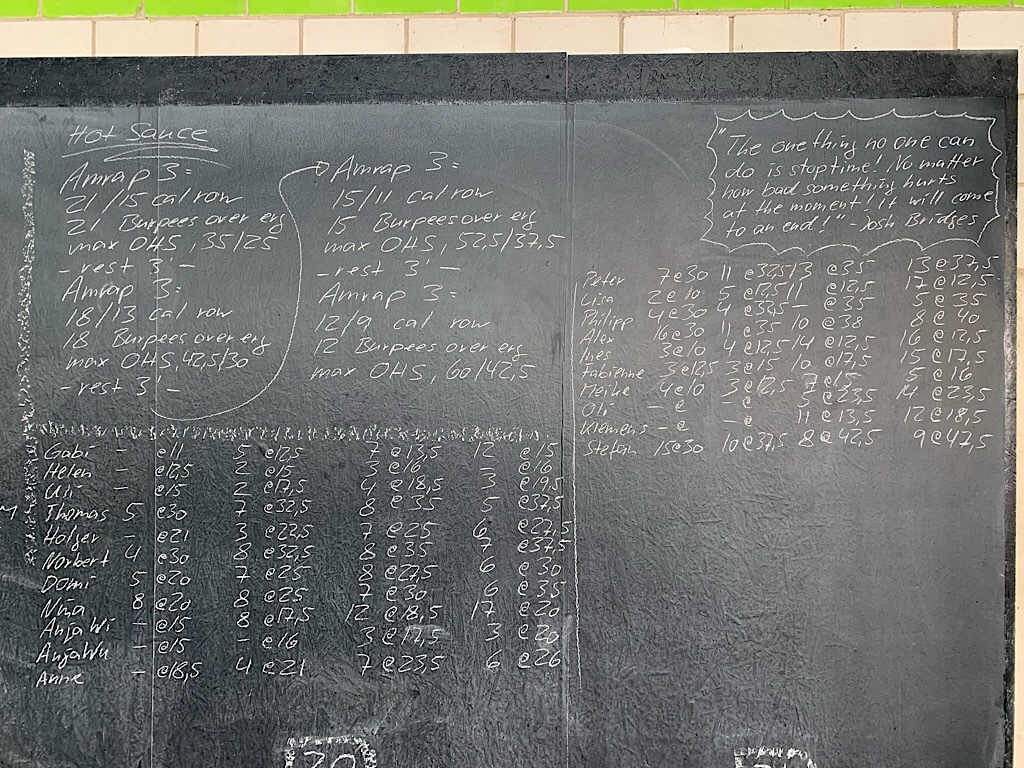 Hot Sauce
Amrap 3:
21/15 cal row
21 Burpees over erg
max OHS, 35/25
- rest 3' -
Amrap 3:
18/13 cal row
18 Burpees over erg
max OHS, 42,5/30
- rest 3' -
Amrap 3:
15/11 cal row
15 Burpees over erg
max OHS, 52,5/37,5
- rest 3' -
Amrap 3:
12/9 cal row
12 Burpees over erg
max OHS, 60/42,5
"The one thing no one can
do is stop time! No matter
how bad something hurts
at the moment! it will come
to an end!" - Josh Bridges
Gabi - @11 5 @12,5 7 @13,5 12 @15
Helen - @12,5 2 @15 3 @16 - @16
Uli - @15 2 @17,5 4 @18,5 3 @19,5
Thomas 5 @30 7 @32,5 8 @35 5 @37,5
Holger - @21 3 @22,5 7 @25 6 @27,5
Norbert 4 @30 8 @32,5 8 @35 7 @37,5
Domi 5 @20 7 @25 8 @27,5 6 @30
Nina 8 @20 8 @25 7 @30 6 @35
Anja Wi - @15 8 @17,5 12 @18,5 17 @20
Anja Wu - @15 - @16 3 @17,5 3 @20
Anne - @18,5 4 @21 7 @23,5 6 @26
Peter 7@30 11 @32,5 13 @35 13 @37,5
Lisa 2@10 5 @12,5 11 @12,5 17 @12,5
Philipp 4@30 4 @35 5 @35
Alex 16@30 11 @35 10 @38 8 @40
Ines 3@10 4 @12,5 14 @12,5 16 @12,5
Fabienne 3@12,5 3@15 10 @17,5 15 @17,5
Meike 4@10 3 @12,5 7@15 5 @16
Oli - @ - @ 5 @23,5 14 @23,5
Klemens - @ - @ 11 @13,5 12 @18,5
Stefan 15@30 10@37,5 8@42,5 9@47,5